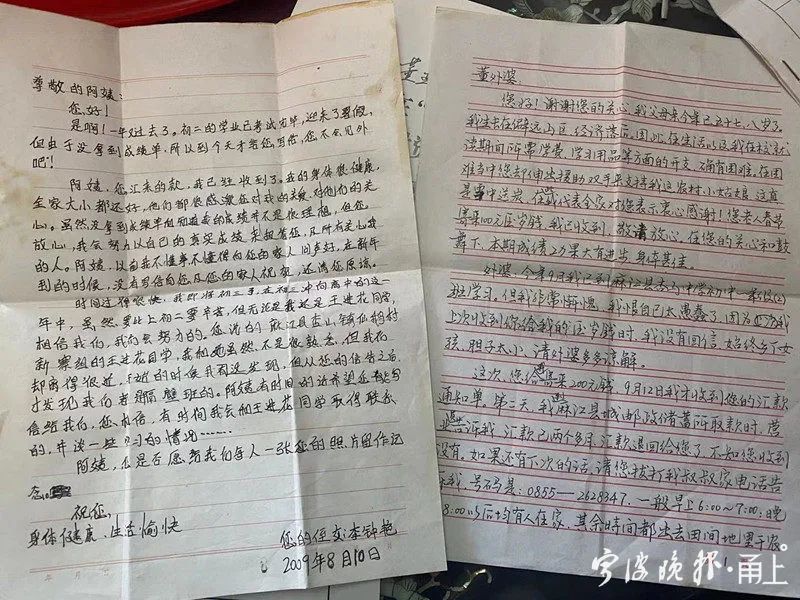 尊敬的阿姨:
您好!
是啊!一年过去了。初二的学业已考试完毕,迎来了暑假,
但由于没拿到成绩单,所以到今天才给您写信,您不会见外
吧!
阿姨,您汇来的款,我已经收到了。我的身体很健康,
全家大小都还好,他们都很感激您对我的关爱,对他们的关
心。虽然没拿到成绩单但知道我的成绩并不是很理想,但您
放心,我会努力以自己的真实成绩来报答您,及所有关心我
的人。阿姨,以前我不懂事不懂得向您的家人问声好,在新年
到的时候,没有写信向您及您的家人祝贺,还请您原谅。
时间过得很快,我即将初三了,在初三冲向高中的这一
年中,虽然要比上初二要辛苦,但无论是我还是王进花同学,
相信我们,我们会努力的。您说的麻江县杏山镇仙鹅村
新寨组的王进花同学,我和她虽然不是很熟悉,但我们
却离得很近,近的时候我们没发现,但从您的信告之后,
才发现我们者隔壁班的。阿姨有时间的话希望您都写
信给我们,您放信,有时间我会和王进花同学取得联系
的,并谈一些学习的情况……
阿姨,您是否愿意给我们每人一张您的照片留作记
念。
祝您:
身体健康、生活愉快
您的侄女:李钟艳
2009年8月10日
董外婆:
您好!谢谢您的关心,我父母亲今年已五十七、八岁了。
我生长在偏远山区,经济落后,因此,在生活以及我在校就
读期间所需学费,学习用品等方面的开支,确有困难。在困
难当中您却伸出援助双手来支持我这农村小姑娘,这真
是雪中送炭,在此我代表全家对您表示衷心感谢!您老人春节
寄来100元压岁钱,我已收到,敬请放心。在您的关心和鼓
舞下,本期成绩23力果大有进步,身体甚佳。
外婆,今年9月我已到麻江县杏山中学初中一年级(2)
班学习。但我非常惭愧,我恨自己太愚蠢了,因为
上次收到你给我的压岁钱时,我没有回信,始终乡下女
孩,胆子太小,请外婆多多谅解。
这次,您给寄来200元钱,9月12日我才收到您的汇款
通知单,第二天,我麻江县城邮政储蓄所取款时,营
业告诉我,汇款已两个多月,汇款退回给您了,不知您收到
没有,如果还有下次的话,请您拨打我叔叔家电话告
诉我,号码是:0855—2628347,一般早上6:00~7:00;晚
8:00以后均有人在家,其余时间都出去田间地里干农
宁波晚报·甬上